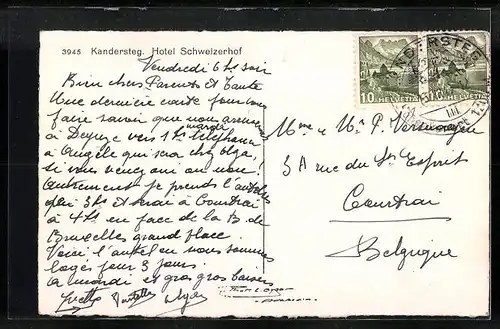 3945 Kandersteg. Hotel Schweizerhof
Vendredi 6 hs soir
Bien chers Parents et Tante
Une dernière carte pour vous
faire savoir que nous arrivons
à Deynze vers 1 hs
mardi
téléphonez
à Angèle qui sera chez Olga
si vous venez ou non!
Autrement je prends l'autobus
5 hs et serai à Courtrai
à 4 hs en face de la B de
Bruxelles grand place.
Voici l'hôtel où nous sommes
logés pour 3 jours.
à mardi et gros gros baisers
Yvette
Mme et Mr P. Versungen
3A rue du St Esprit
Courtrai
Belgique
10 HELVETIA
10 HELVETIA
KANDERSTEG